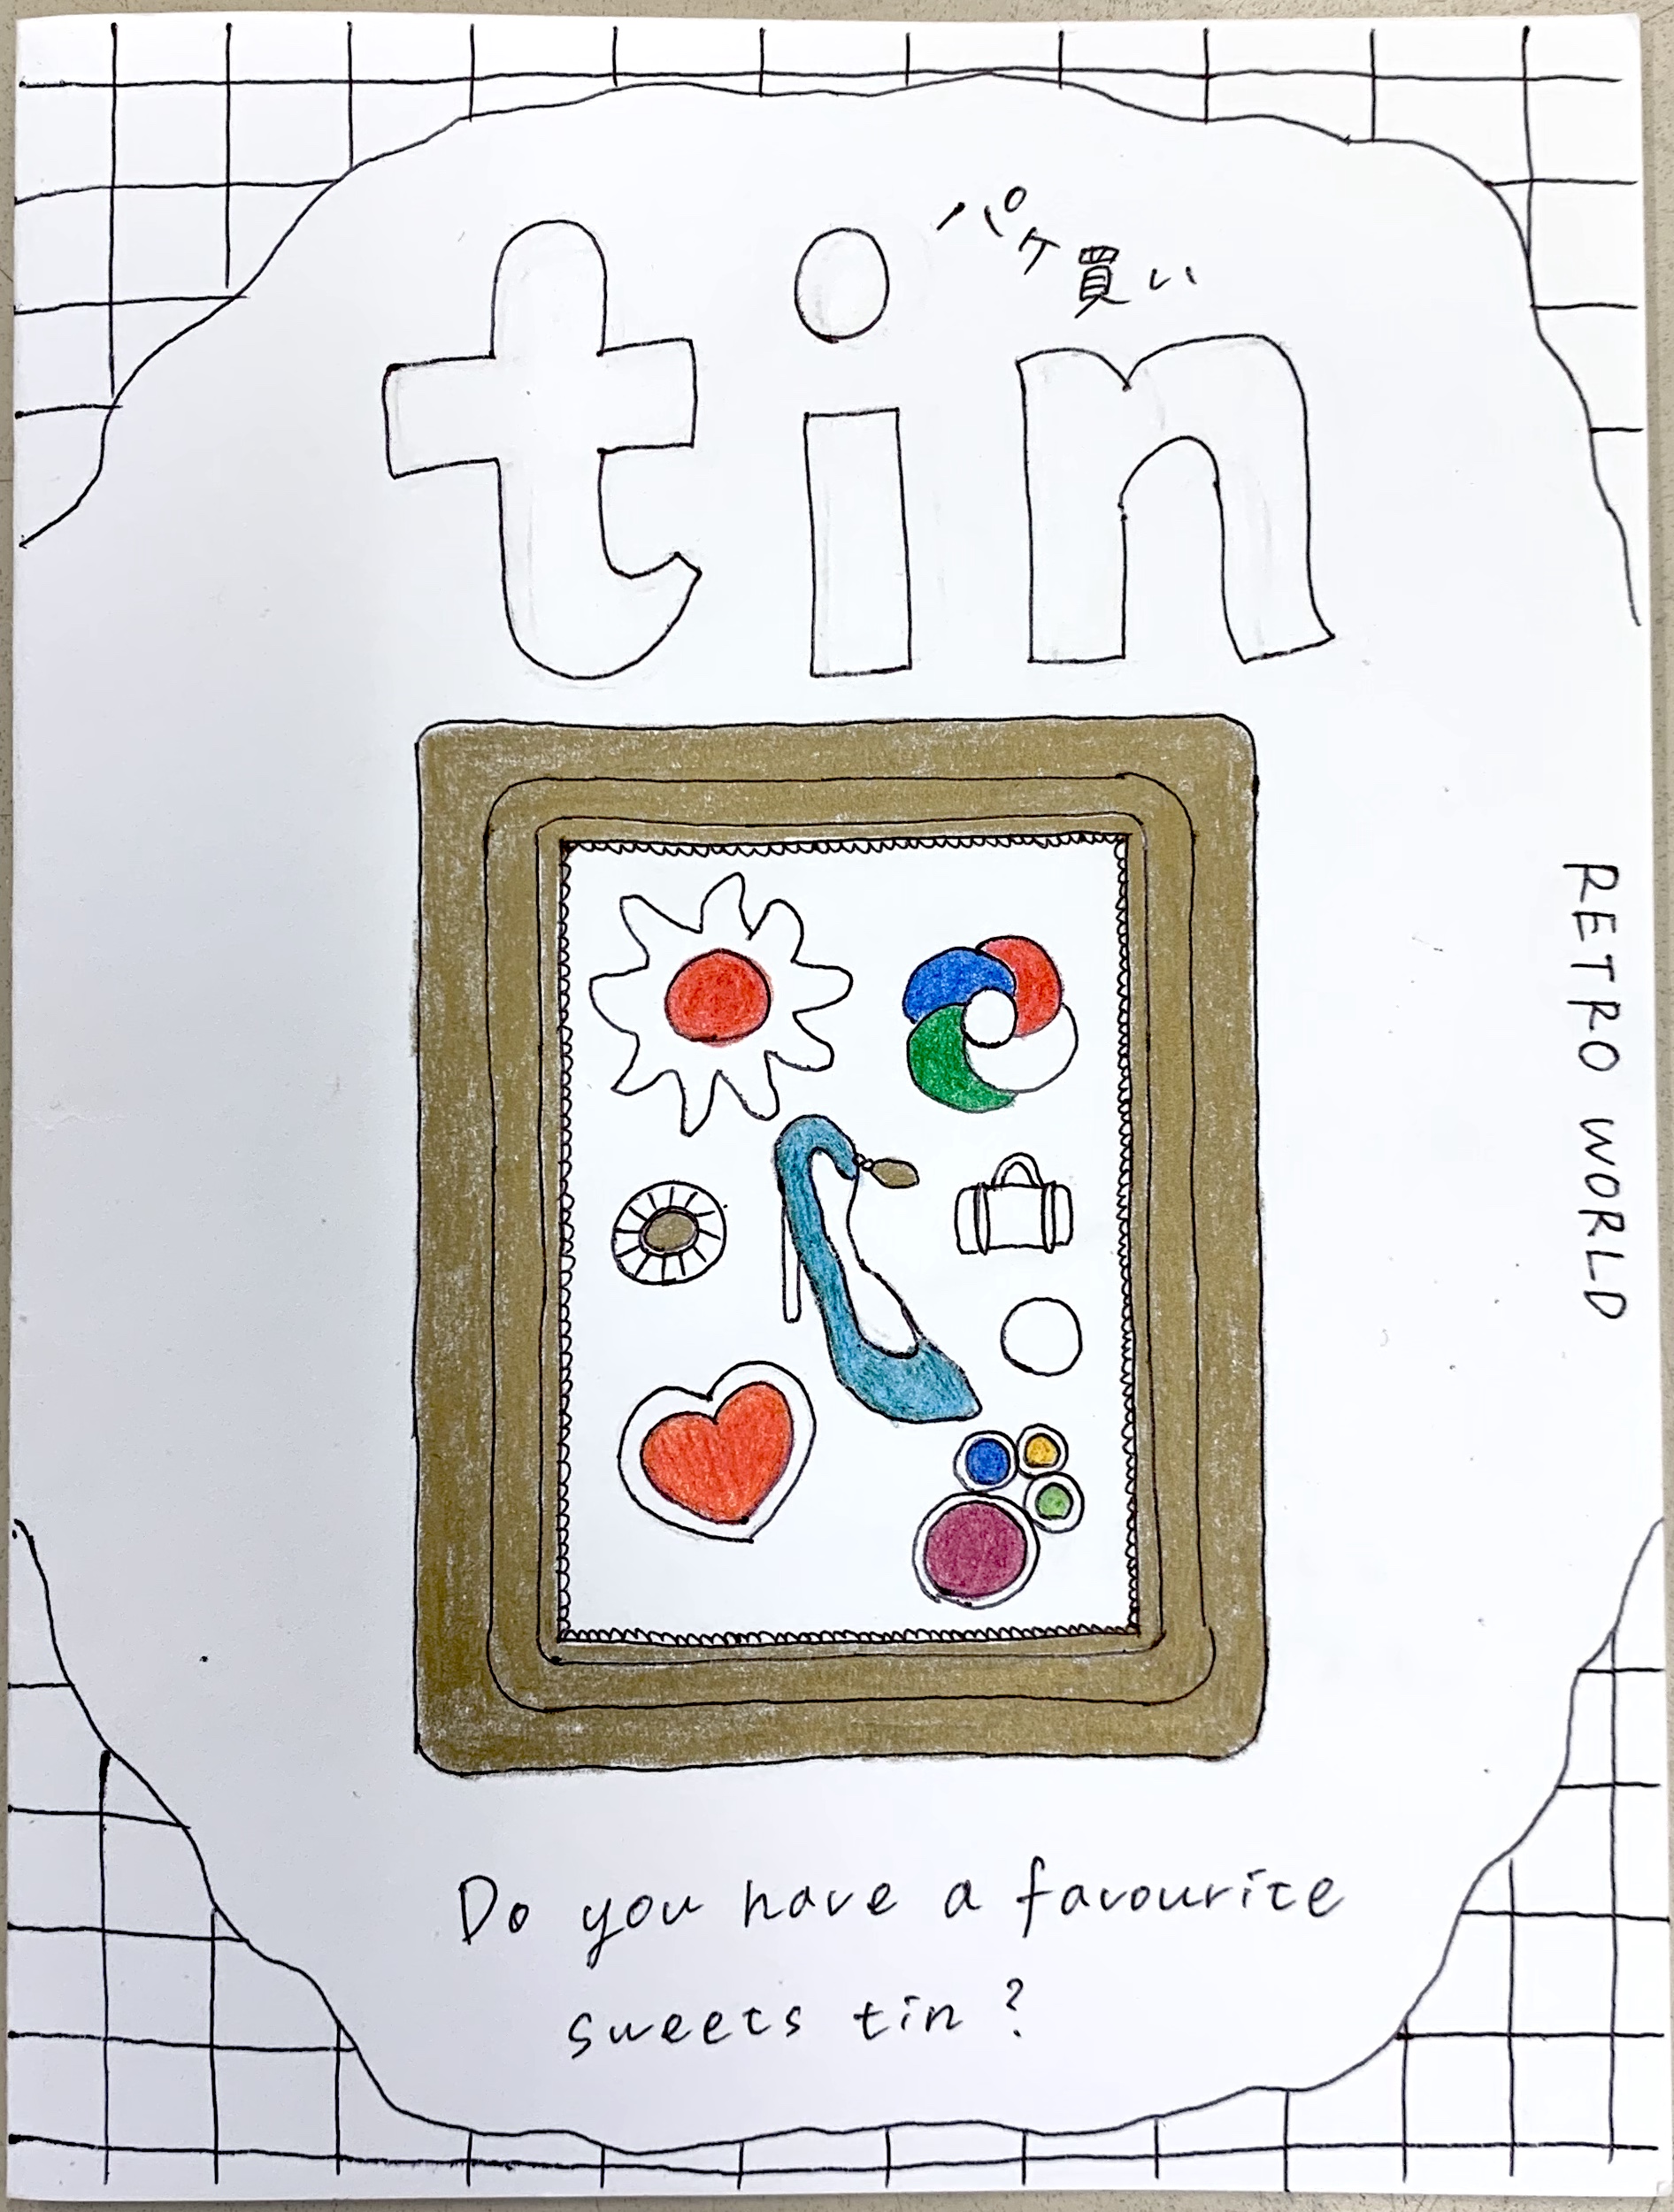 パケ買い
tin
RETRO WORLD
Do you have a favourite
sweets tin?